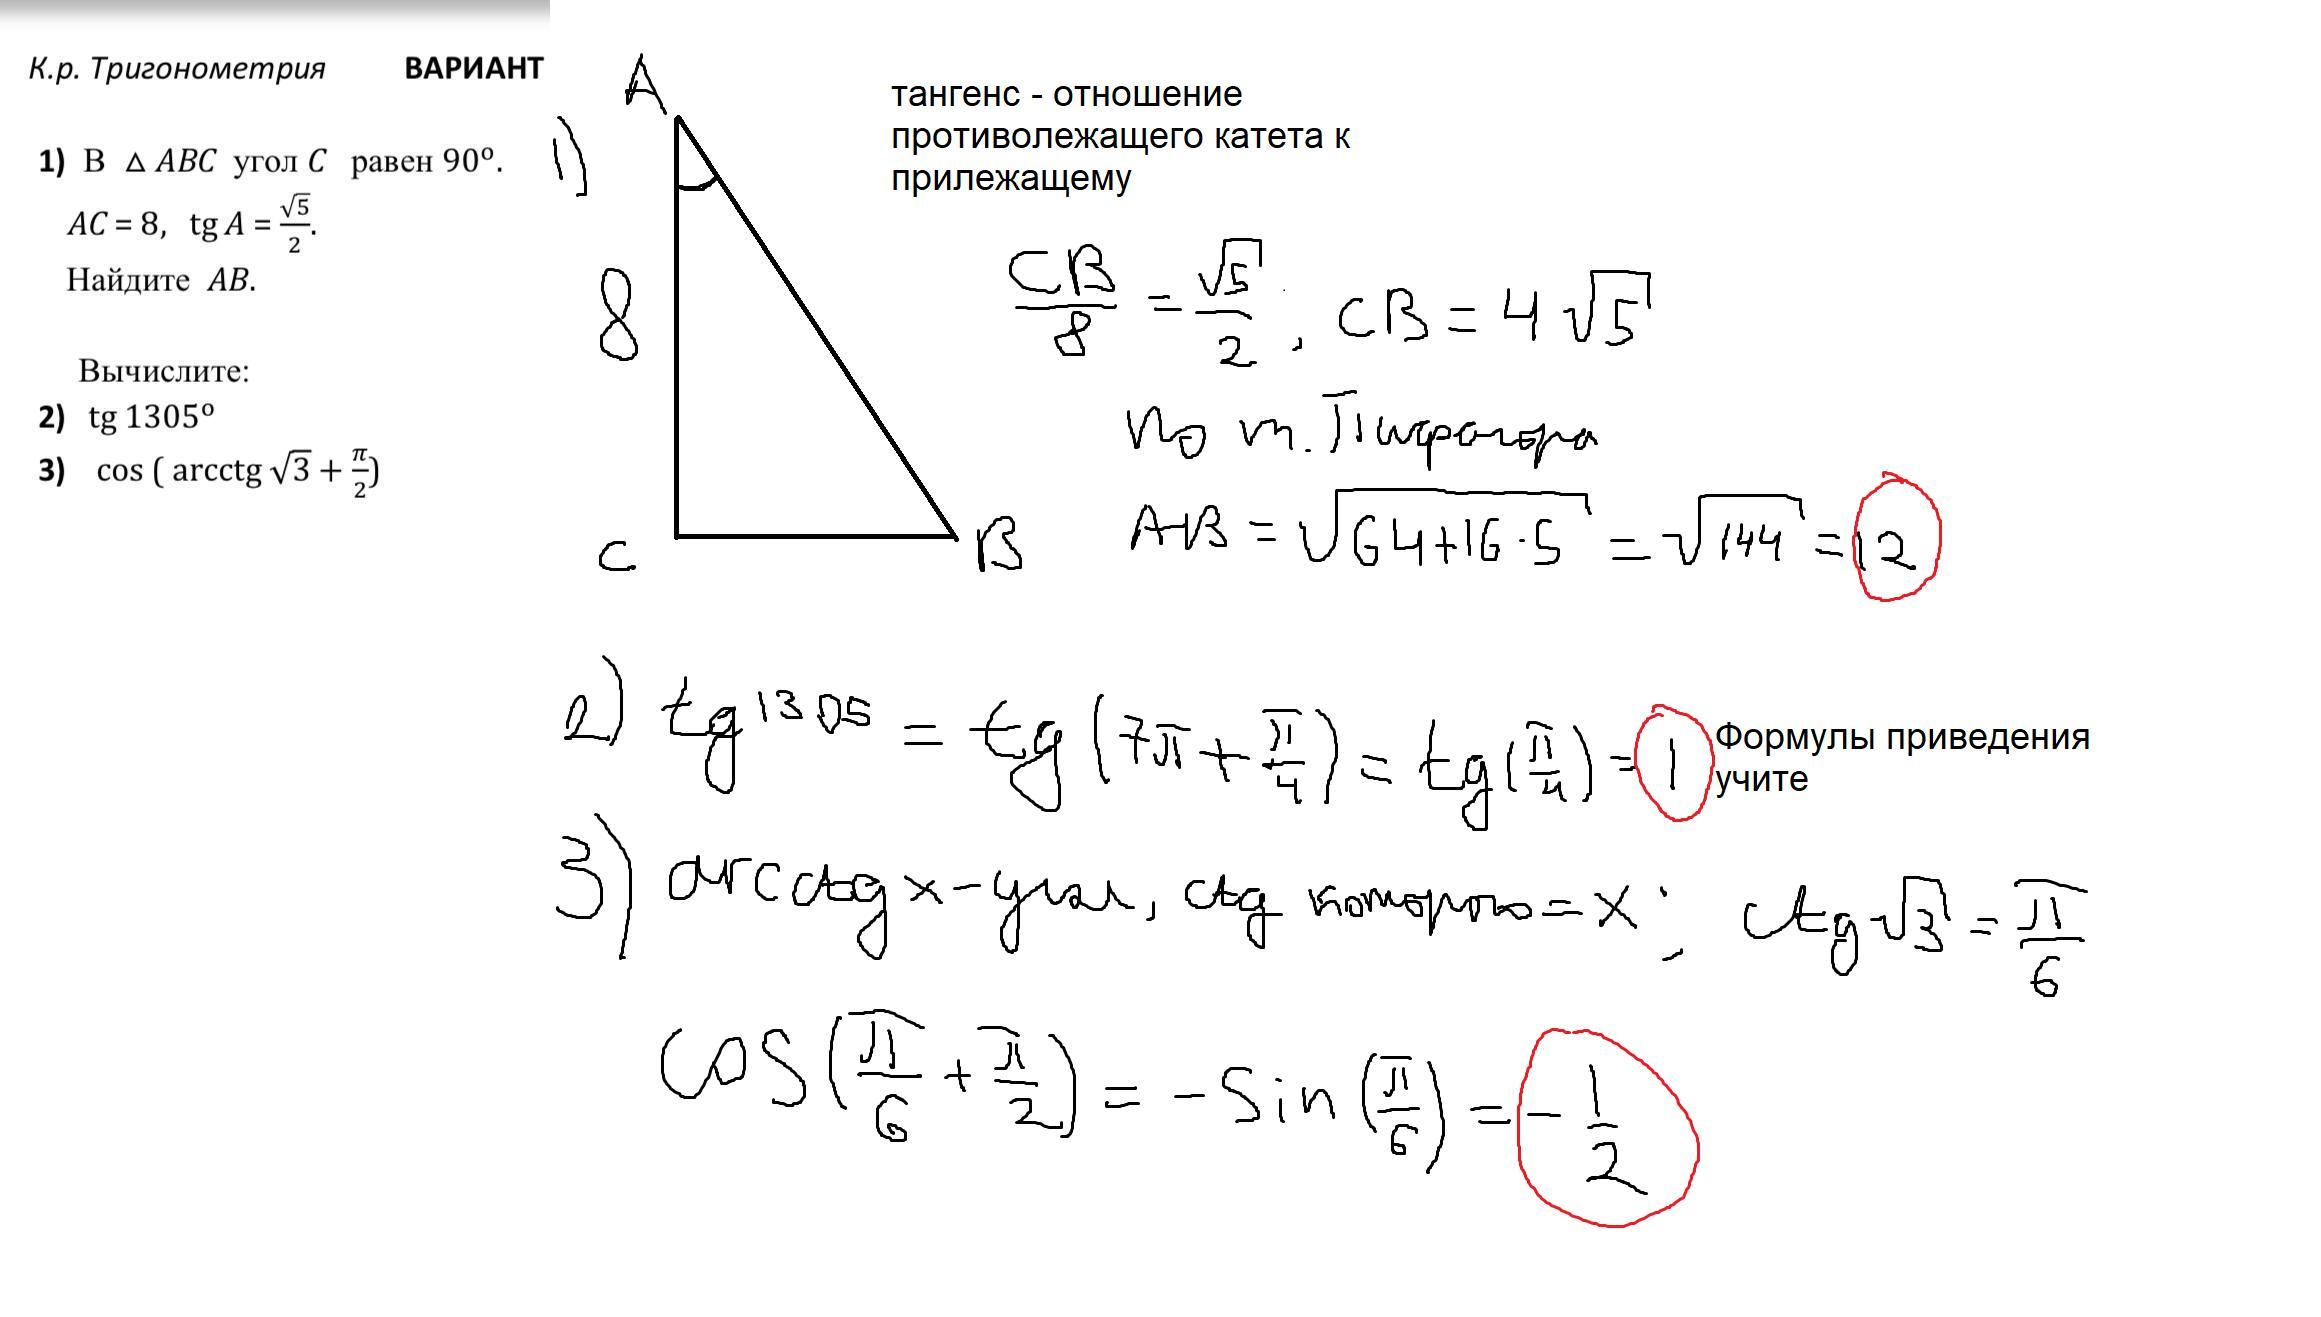 К.р. Тригонометрия ВАРИАНТ
1) В △ ABC угол C равен 90°.
AC = 8, tg A = √5/2.
Найдите AB.
Вычислите:
2) tg 1305°
3) cos ( arcctg √3 + π/2)
1)
A
8
C
B
тангенс - отношение
противолежащего катета к
прилежащему
CB/8 = √5/2, CB = 4√5
По т. Пифагора
AB = √64+16·5 = √144 = 12
2) tg 1305 = tg(7π + π/4) = tg(π/4) = 1
Формулы приведения
учите
3) arcctg x – угол, ctg которого = x; ctg √3 = π/6
cos(π/6 + π/2) = - sin(π/6) = - 1/2